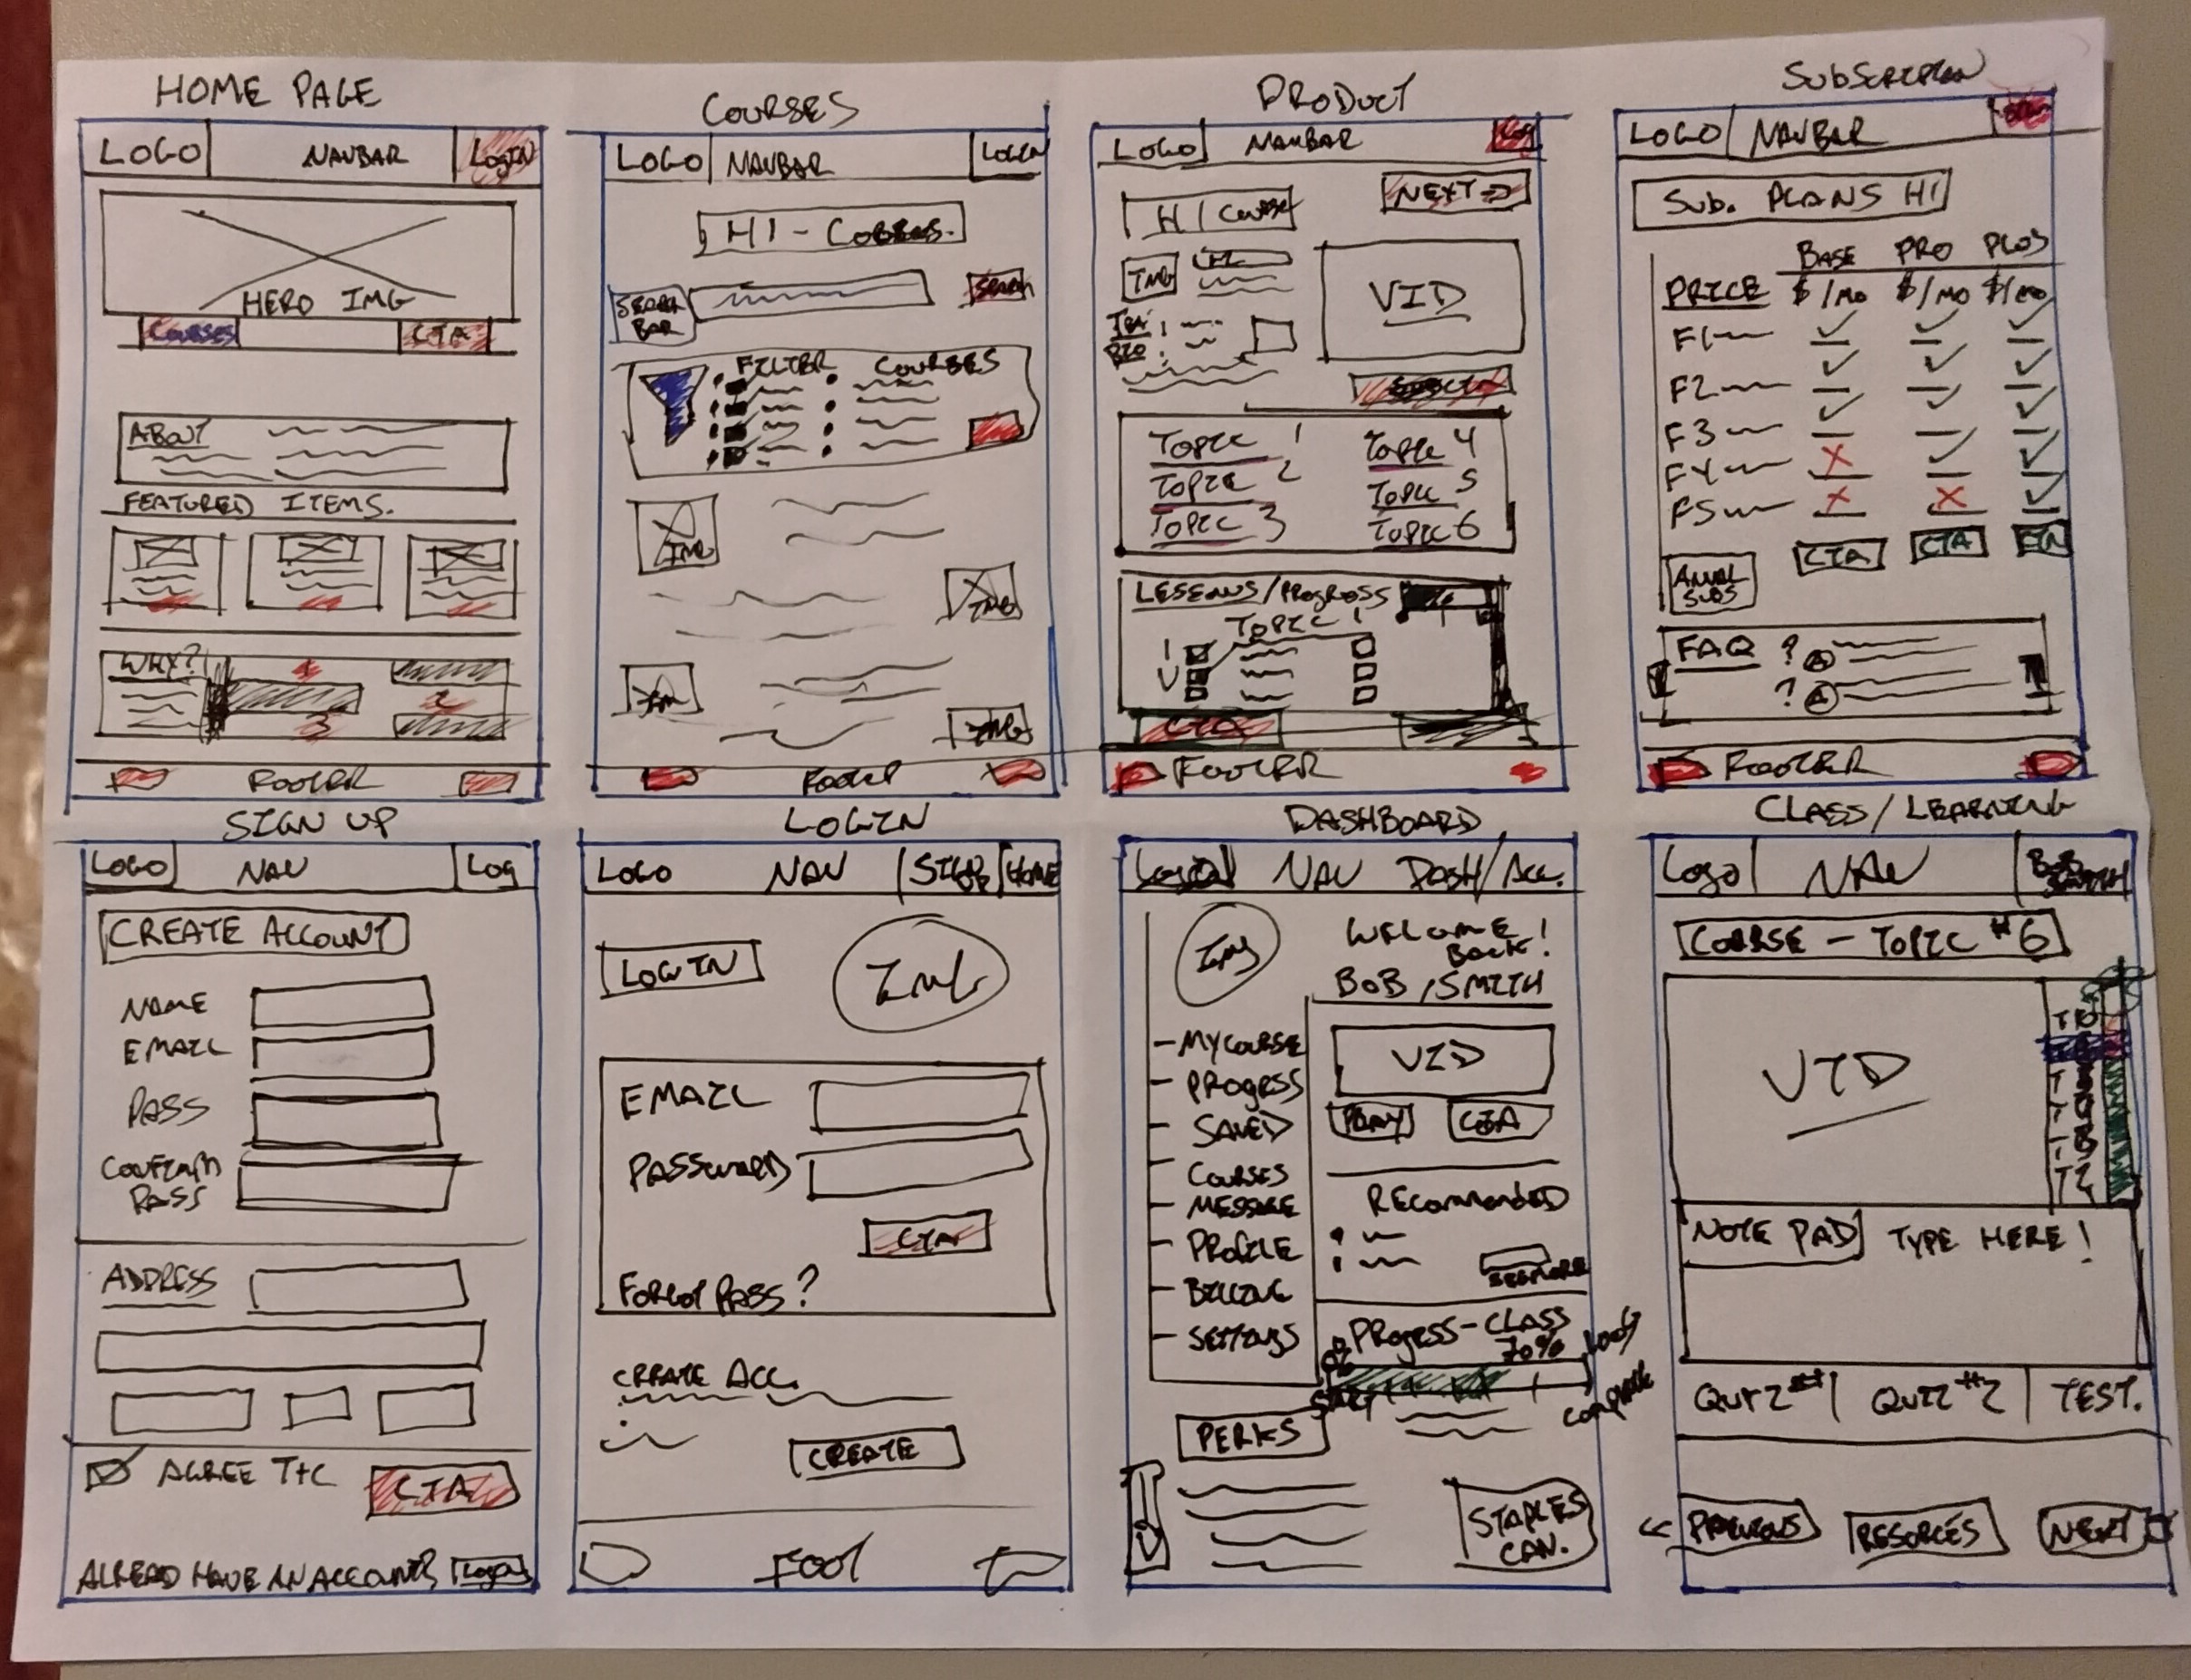 HOME PAGE
LOGO
NAVBAR
LOGIN
HERO IMG
COURSES
CTA
ABOUT
FEATURED ITEMS.
WHY?
1
2
3
FOOTER
COURSES
LOGO
NAVBAR
LOGIN
H1 -
SEARCH
BAR
SEARCH
FILTER
COURSES
IMG
IMG
IM
IMG
FOOTER
PRODUCT
LOGO
NAVBAR
LOG
H1 COURSE
NEXT
IMG
VID
BIO
TOPIC 1
TOPIC 4
TOPIC 2
TOPIC 5
TOPIC 3
TOPIC 6
LESSONS/PROGRESS
TOPIC 1
CTA
FOOTER
SUBSCRIPTION
LOGO
NAVBAR
SUB. PLANS H1
BASE PRO PLUS
PRICE $/MO $/MO $/MO
F1
F2
F3
F4
F5
CTA
CTA
ANUAL
SUBS
FAQ
?
A
?
A
FOOTER
SIGN UP
LOGO
NAV
LOG
CREATE ACCOUNT
NAME
EMAIL
PASS
CONFIRM
PASS
ADDRESS
AGREE T+C
CTA
ALREAD HAVE AN ACCOUNT?
LOGIN
LOGIN
LOGO
NAV
HOME
LOGIN
IMG
EMAIL
PASSWORD
CTA
FORGOT PASS?
CREATE ACC.
CREATE
FOOT
DASHBOARD
NAV
DASH/ACC.
IMG
WELCOME
BACK!
BOB SMITH
MY COURSE
PROGRESS
SAVED
COURSES
MESSAGE
PROFILE
BILLING
SETTINGS
VID
PLAY
CTA
RECOMMENDED
SEE MORE
PROGRESS-CLASS
70%
START
COMPLETE
PERKS
STAPLES
CAN.
CLASS/LEARNING
LOGO
NAV
BOB
SMITH
COURSE - TOPIC #6
VID
NOTE PAD
TYPE HERE!
QUIZ #1
QUIZ #2
TEST.
PREVIOUS
RESORCES
NEXT